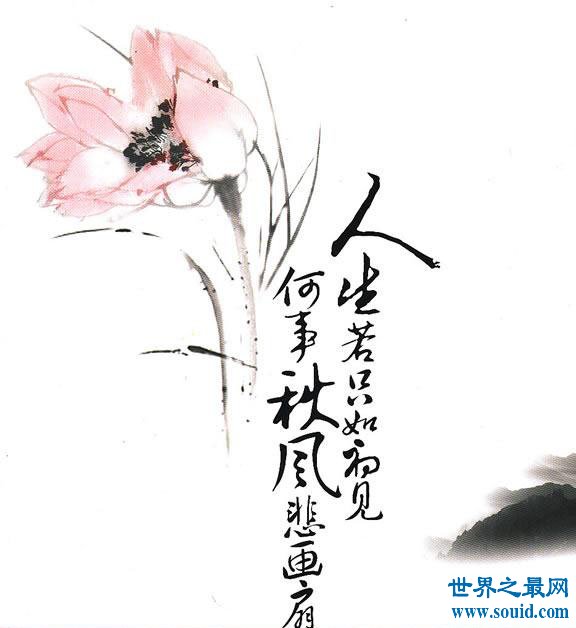 人生若只如初见
何事秋风悲画扇
世界之最网
www.souid.com